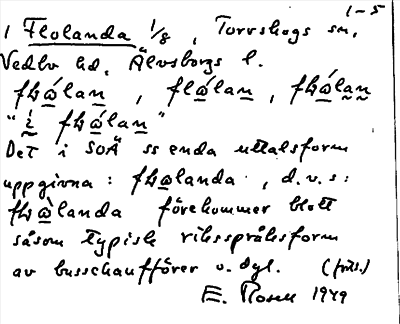 1-5
1 Flolanda 1/8, Torrskogs sn,
Vedbo hd, Älvsborgs l.
flώlan, flώlan, flώlan
"i̇ flώlan"
Det i SOÄ ss enda uttalsform
uppgivna: flωlanda, d.v.s:
flὼlanda förekommer blott
såsom typisk riksspråksform
av busschaufförer o. dyl. (forts.)
E. Rosell 1949